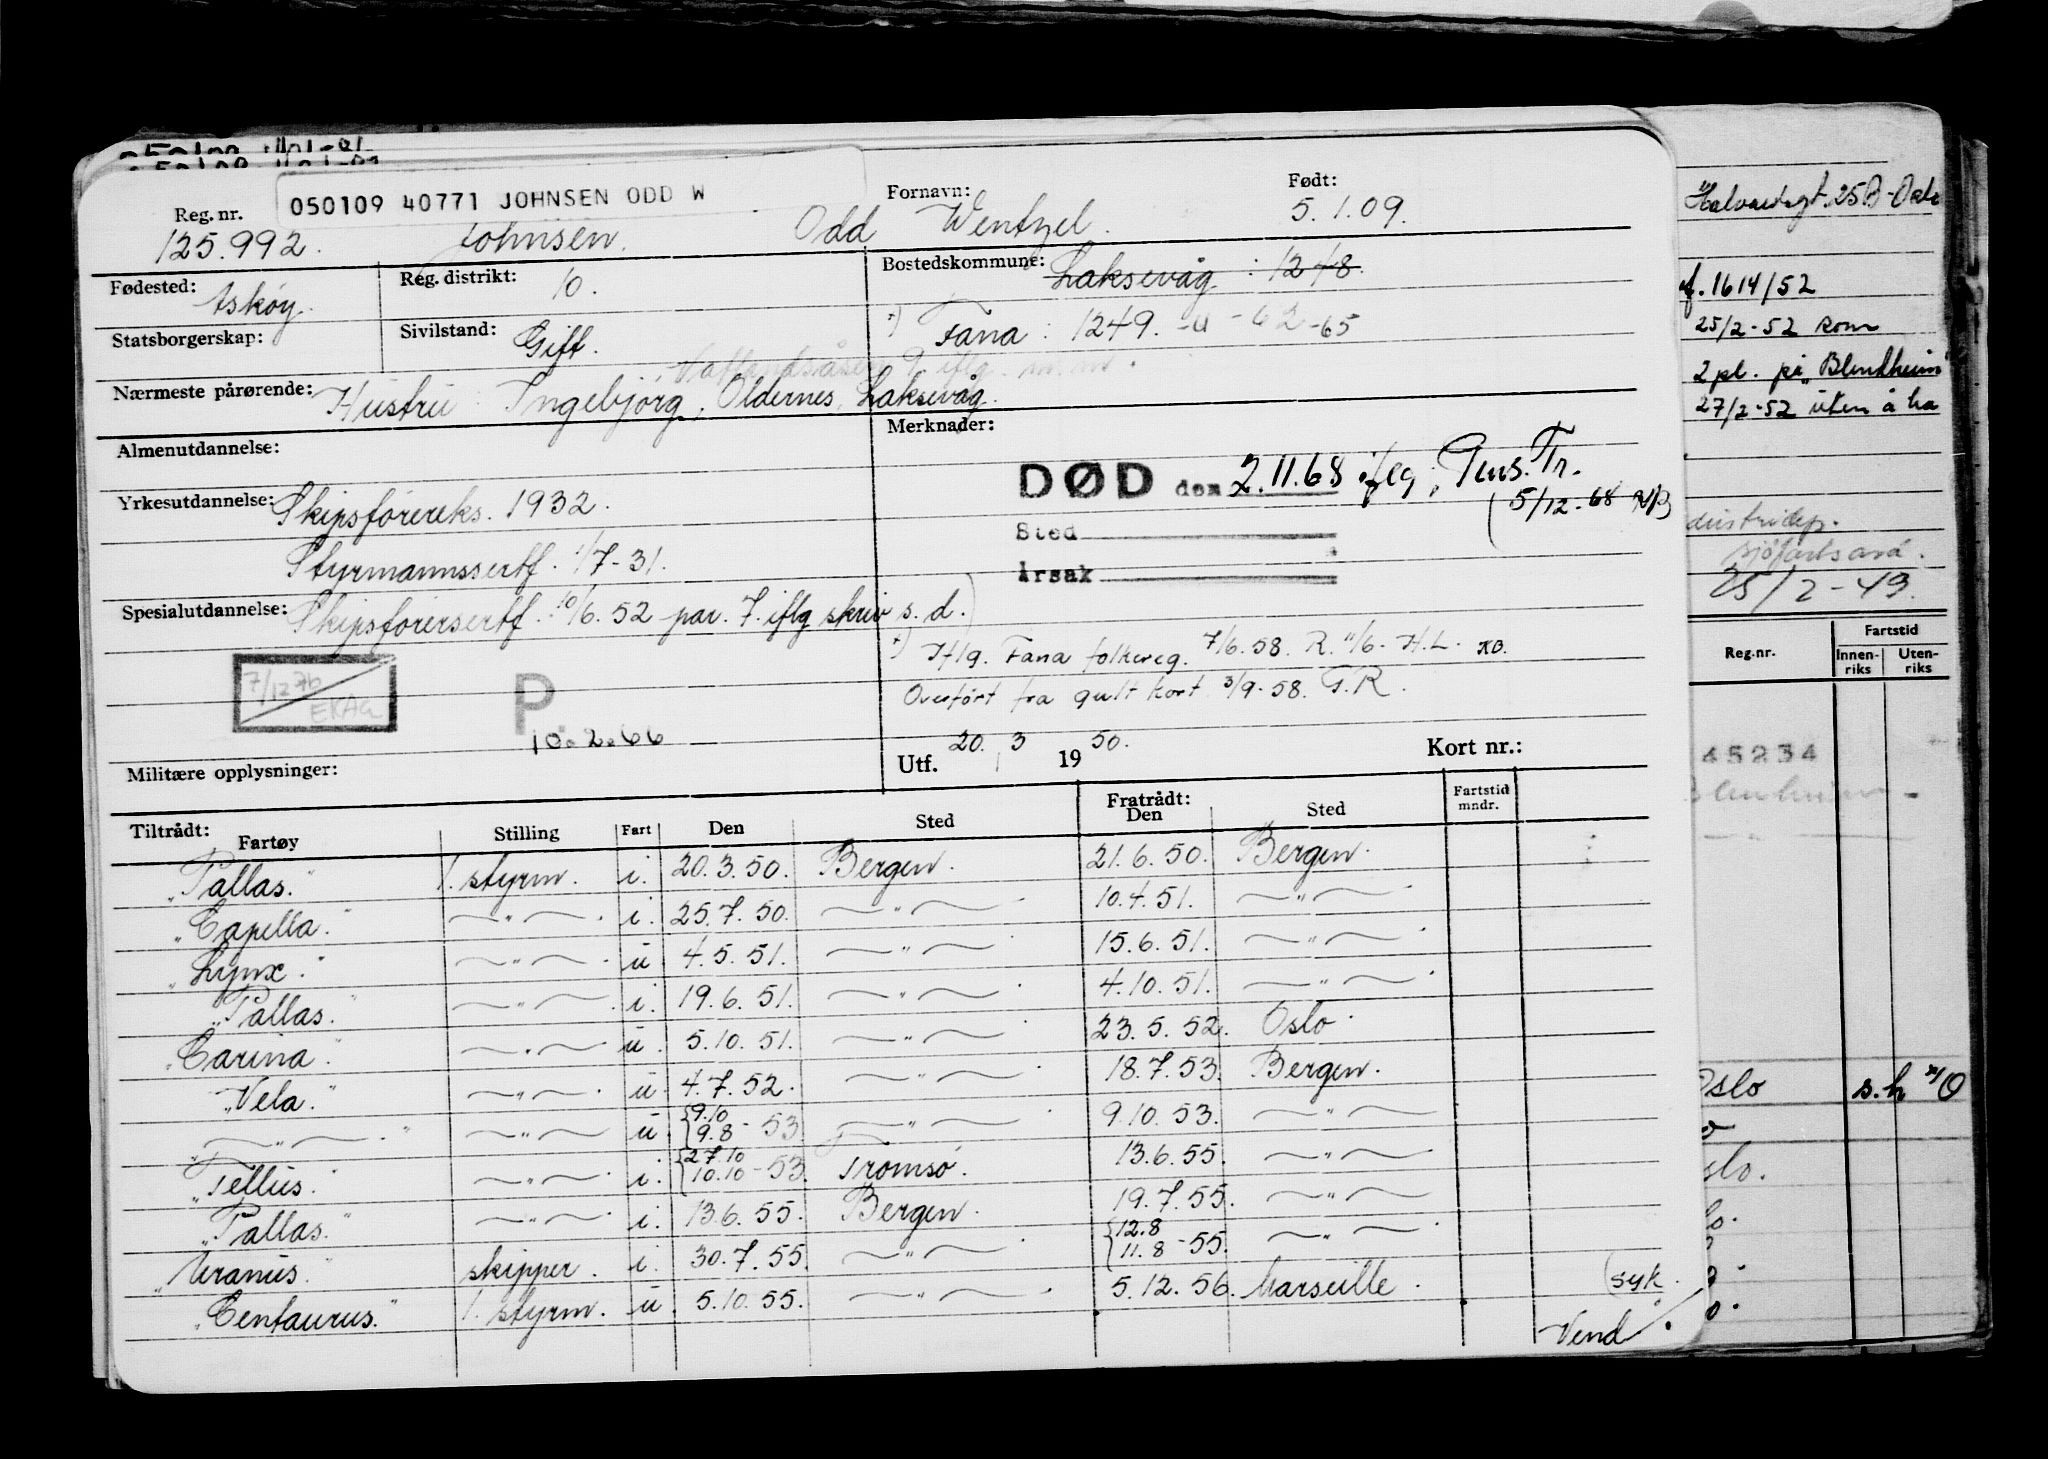 050109 40771 JOHNSEN ODD W
Reg. nr. Fornavn: Født:
125.992. Johnsen. Odd Wentzel. 5.1.09.
Fødested: Askøy. Reg. distrikt: 10. Bostedskommune: Laksevåg : 1248.
Statsborgerskap: Sivilstand: Gift. Fana : 1249. -u -62 -65
Nærmeste pårørende: Hustru Ingebjörg, Oldernes, Laksevåg.
Almenutdannelse: Merknader:
DØD den 2.11.68 iflg. Pens. Tr.
5/12-68
Yrkesutdannelse: Skipsförereks. 1932.
Sted
Styrmannssertf. 1/7-31.
Årsak
Spesialutdannelse: Skipsförersertf. : 10/6.52 par. 7. iflg skriv s. d.
Iflg. Fana folkereg. 7/6.58. R. 11/6- H.L.
Overført fra gult kort 3/9-58. F.R.
7/12 76
EKAG
P
10.2.66
Utf. 20. 3 1950. Kort nr.:
Militære opplysninger:
Tiltrådt: Fratrådt:
Fartøy Stilling Fart Den Sted Den Sted Fartstid mndr.
"Pallas." 1. styrm. i. 20.3.50. Bergen. 21.6.50. Bergen.
"Capella." —"— i. 25.7.50. —"— 10.4.51. —"—
"Lynx." —"— u 4.5.51. —"— 15.6.51. —"—
"Pallas." —"— i. 19.6.51. —"— 4.10.51. —"—
"Carina." —"— u. 5.10.51. —"— 23.5.52. Oslo.
"Vela." —"— u. 4.7.52. —"— 18.7.53. Bergen.
"—"—." —"— u. {9.10 9.8 -53. —"— 9.10.53. —"—
"Tellus." —"— i. {27.10 10.10 -53. Tromsø. 13.6.55. —"—
"Pallas." —"— i. 13.6.55. Bergen. 19.7.55. —"—
"Uranus." skipper. i. 30.7.55. —"— {12.8 11.8 -55. —"—
"Centaurus." 1. styrm. u. 5.10.55. —"— 5.12.56. Marseille. (syk.
Vend/.
Halvardsgt. 25B-Oslo
f. 1614/52
25/2-52 Rom
2 pl. på "Blenheim"
27/2-52 uten å ha
dustridep.
sjøfartsavd.
25/2-49.
Reg.nr. Fartstid
Innen-riks Uten-riks
45234
Blenheim
Oslo s.h
slo.